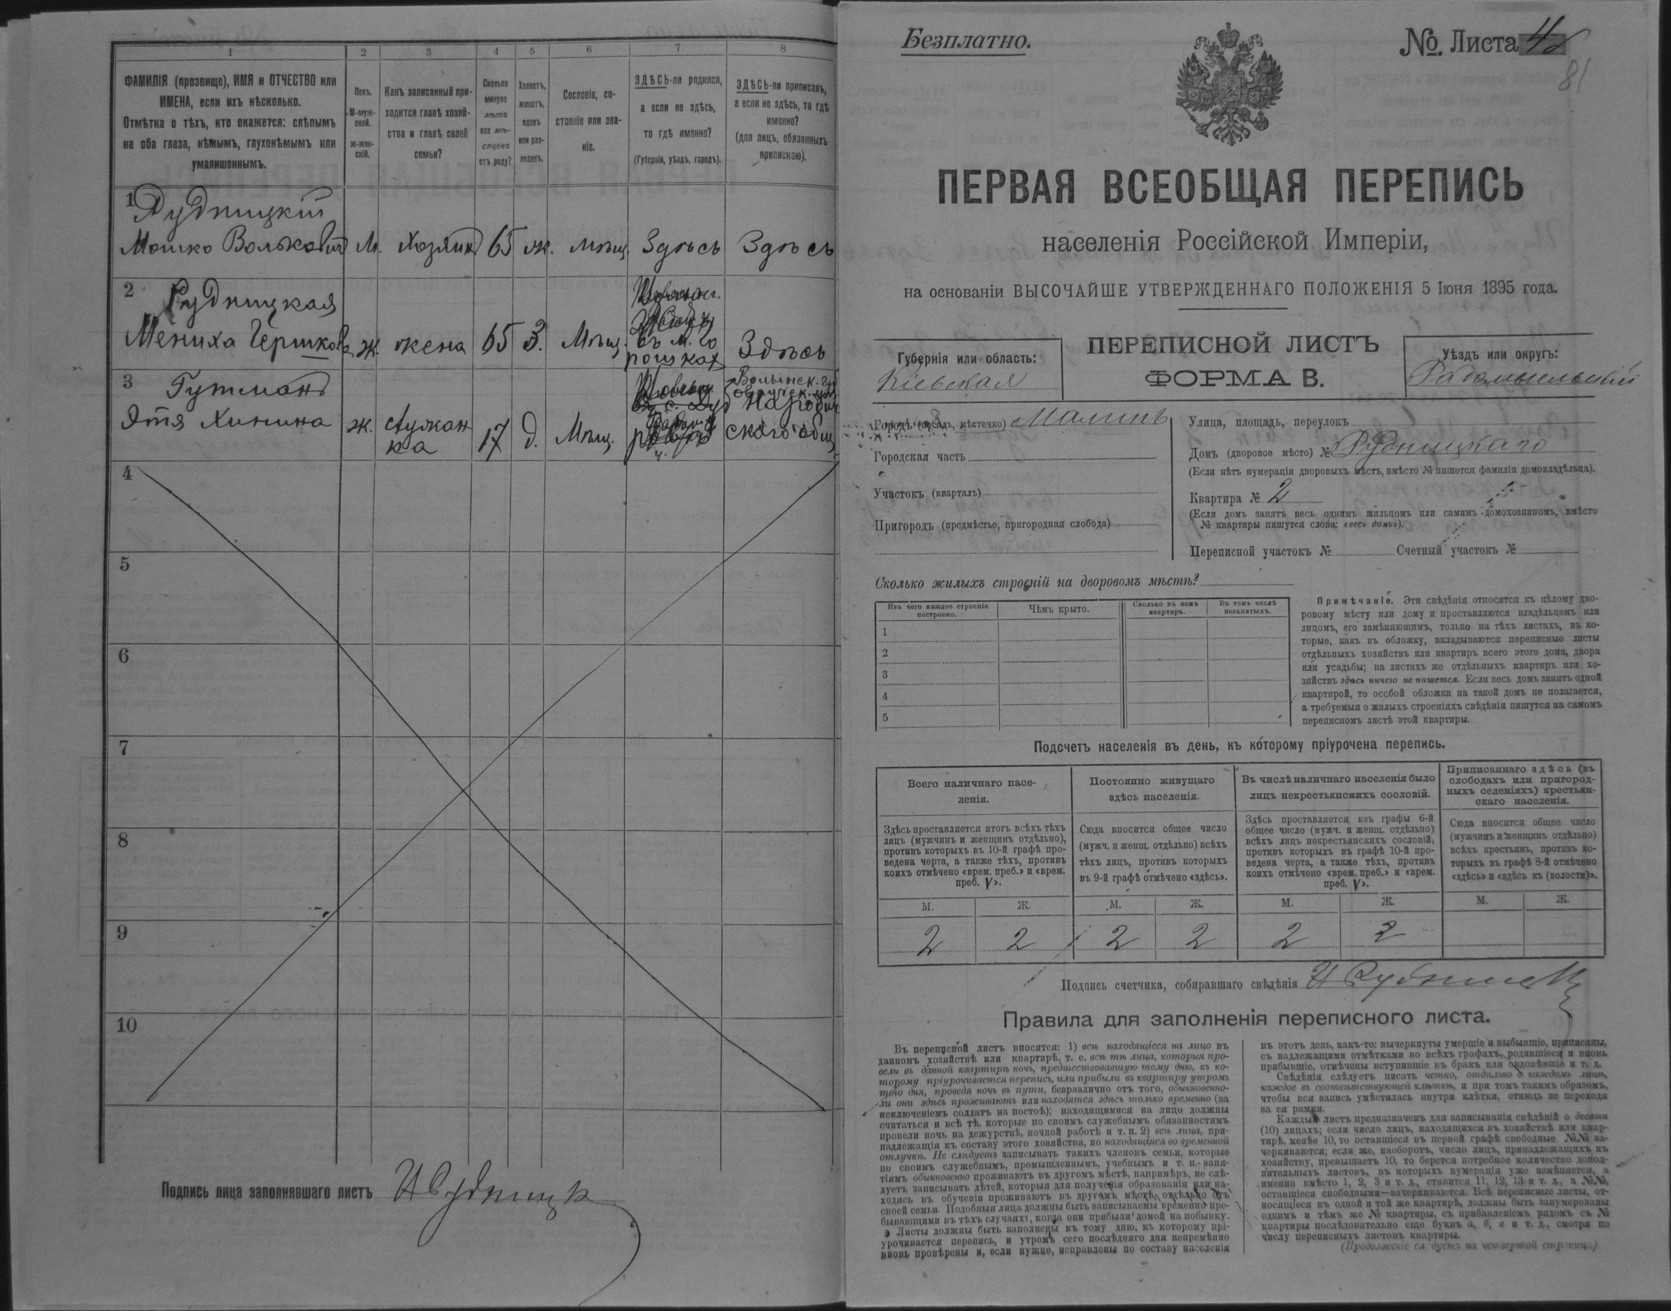 1 2 3 4 5 6 7 8
ФАМИЛІЯ (прозвище), ИМЯ и ОТЧЕСТВО или
ИМЕНА, если ихъ нѣсколько.
Отмѣтка о тѣхъ, кто окажется: слѣпымъ
на оба глаза, нѣмымъ, глухонѣмымъ или
умалишеннымъ.
Полъ.
М-муж-
ской.
ж-жен-
скій.
Какъ записанный при-
ходится главѣ хозяй-
ства и главѣ своей
семьи?
Сколько
минуло
лѣтъ
или мѣ-
сяцевъ
отъ роду?
Холостъ,
женатъ,
вдовъ
или раз-
веденъ.
Сословіе, со-
стояніе или зва-
ніе.
ЗДѢСЬ-ли родился,
а если не здѣсь,
то гдѣ именно?
(Губернія, уѣздъ, городъ).
ЗДѢСЬ-ли приписанъ,
а если не здѣсь, то гдѣ
именно?
(для лицъ, обязанныхъ
припискою).
1 Рудницкій
Мошко Вольковичъ М. Хозяинъ 65 ж. мѣщ. Здѣсь Здѣсь
2 Рудницкая
Мениха Гершкова ж. жена 65 З. Мѣщ. Здѣсь
3 Гутманъ
Этя Хинина ж. служан
ка 17 д. Мѣщ.
4
5
6
7
8
9
10
Подпись лица заполнявшаго листъ
Безплатно.
№. Листа
81
ПЕРВАЯ ВСЕОБЩАЯ ПЕРЕПИСЬ
населенія Россійской Имперіи,
на основаніи ВЫСОЧАЙШЕ УТВЕРЖДЕННАГО ПОЛОЖЕНІЯ 5 Іюня 1895 года.
Губернія или область:
Кіевская
ПЕРЕПИСНОЙ ЛИСТЪ
ФОРМА В.
Уѣздъ или округъ:
Радомысльскій
Городъ (посадъ, мѣстечко) Малинъ
Городская часть
Участокъ (кварталъ)
Пригородъ (предмѣстье, пригородная слобода)
Улица, площадь, переулокъ
Домъ (дворовое мѣсто) № Рудницкаго
(Если нѣтъ нумераціи дворовыхъ мѣстъ, вмѣсто № пишется фамилія домовладѣльца).
Квартира № 2
(Если домъ занятъ весь однимъ жильцомъ или самимъ домохозяиномъ, вмѣсто
№ квартиры пишутся слова: «весь домъ»).
Переписной участокъ № Счетный участокъ №
Сколько жилыхъ строеній на дворовомъ мѣстѣ?
Изъ чего каждое строеніе
построено.
Чѣмъ крыто.
Сколько въ немъ
квартиръ.
Въ томъ числѣ
незанятыхъ.
1
2
3
4
5
Примѣчаніе. Эти свѣдѣнія относятся къ цѣлому дво-
ровому мѣсту или дому и проставляются владѣльцемъ или
лицомъ, его замѣняющимъ, только на тѣхъ листахъ, въ ко-
торые, какъ въ обложку, вкладываются переписные листы
отдѣльныхъ хозяйствъ или квартиръ всего этого дома, двора
или усадьбы; на листахъ же отдѣльныхъ квартиръ или хо-
зяйствъ здѣсь ничего не пишется. Если весь домъ занятъ одной
квартирой, то особой обложки на такой домъ не полагается,
а требуемыя о жилыхъ строеніяхъ свѣдѣнія пишутся на самомъ
переписномъ листѣ этой квартиры.
Подсчетъ населенія въ день, къ которому пріурочена перепись.
Всего наличнаго насе-
ленія.
Здѣсь проставляется итогъ всѣхъ тѣхъ
лицъ (мужчинъ и женщинъ отдѣльно),
противъ которыхъ въ 10-й графѣ про-
ведена черта, а также тѣхъ, противъ
коихъ отмѣчено «врем. преб.» и «врем.
преб. V».
Постоянно живущаго
здѣсь населенія.
Сюда вносится общее число
(мужч. и женщ. отдѣльно) всѣхъ
тѣхъ лицъ, противъ которыхъ
въ 9-й графѣ отмѣчено «здѣсь».
Въ числѣ наличнаго населенія было
лицъ некрестьянскихъ сословій.
Здѣсь проставляется изъ графы 6-й
общее число (мужч. и женщ. отдѣльно)
всѣхъ лицъ некрестьянскихъ сословій,
противъ которыхъ въ графѣ 10-й про-
ведена черта, а также тѣхъ, противъ
коихъ отмѣчено «врем. преб.» и «врем.
преб. V».
Приписаннаго здѣсь (въ
слободахъ или пригород-
ныхъ селеніяхъ) крестьян-
скаго населенія.
Сюда вносится общее число
(мужчинъ и женщинъ отдѣльно)
всѣхъ крестьянъ, противъ ко-
торыхъ въ графѣ 8-й отмѣчено
«здѣсь» и «здѣсь къ (волости)».
М. Ж. М. Ж. М. Ж. М. Ж.
2 2 2 2 2 2
Подпись счетчика, собиравшаго свѣдѣнія
Правила для заполненія переписного листа.
Въ переписной листъ вносятся: 1) всѣ находящіеся на лицо въ
данномъ хозяйствѣ или квартирѣ, т. е. всѣ тѣ лица, которыя про-
вели въ данной квартирѣ ночь, предшествовавшую тому дню, къ ко-
торому пріурочивается перепись, или прибыли въ квартиру утромъ
того дня, проведя ночь въ пути, безразлично отъ того, обыкновенно-
ли они здѣсь проживаютъ или находятся здѣсь только временно (за
исключеніемъ солдатъ на постоѣ); находящимися на лицо должны
считаться и всѣ тѣ, которые по своимъ служебнымъ обязанностямъ
провели ночь на дежурствѣ, ночной работѣ и т. п. 2) всѣ лица, при-
надлежащія къ составу этого хозяйства, но находящіяся во временной
отлучкѣ. Не слѣдуетъ записывать такихъ членовъ семьи, которые
по своимъ служебнымъ, промышленнымъ, учебнымъ и т. п. заня-
тіямъ обыкновенно проживаютъ въ другомъ мѣстѣ, напримѣръ, не слѣ-
дуетъ записывать дѣтей, которыя для полученія образованія или на-
ходясь въ обученіи проживаютъ въ другомъ мѣстѣ, отдѣльно отъ
своей семьи. Подобныя лица должны быть записываемы временно пре-
бывающими въ тѣхъ случаяхъ, когда они прибыли домой на побывку.
Листы должны быть заполнены къ тому дню, къ которому прі-
урочивается перепись, и утромъ сего послѣдняго дня непремѣнно
вновь провѣрены и, если нужно, исправлены по составу населенія
въ этотъ день, какъ-то: вычеркнуты умершіе и выбывшіе, приписаны,
съ надлежащими отмѣтками во всѣхъ графахъ, родившіеся и вновь
прибывшіе, отмѣчены вступившіе въ бракъ или овдовѣвшіе и т. д.
Свѣдѣнія слѣдуетъ писать четко, отдѣльно о каждомъ лицѣ,
каждое въ соотвѣтствующей клѣткѣ, и при томъ такимъ образомъ,
чтобы вся запись умѣстилась внутри клѣтки, отнюдь не переходя
за ея рамки.
Каждый листъ предназначенъ для записыванія свѣдѣній о десяти
(10) лицахъ; если число лицъ, находящихся въ хозяйствѣ или квар-
тирѣ, менѣе 10, то оставшіеся въ первой графѣ свободные №№ за-
черкиваются; если же, наоборотъ, число лицъ, принадлежащихъ къ
хозяйству, превышаетъ 10, то берется потребное количество допол-
нительныхъ листовъ, въ которыхъ нумерація уже намѣняется, а
именно вмѣсто 1, 2, 3 и т. д., ставится 11, 12, 13 и т. д., а №№,
оставшіеся свободными—зачеркиваются. Всѣ переписные листы, от-
носящіеся къ одной и той же квартирѣ, должны быть занумерованы
однимъ и тѣмъ же № квартиры, съ прибавленіемъ рядомъ съ №
квартиры послѣдовательно еще буквъ а, б, в и т. д., смотря по
числу переписныхъ листовъ квартиры.
(Продолженіе см. на четвертой страницѣ)